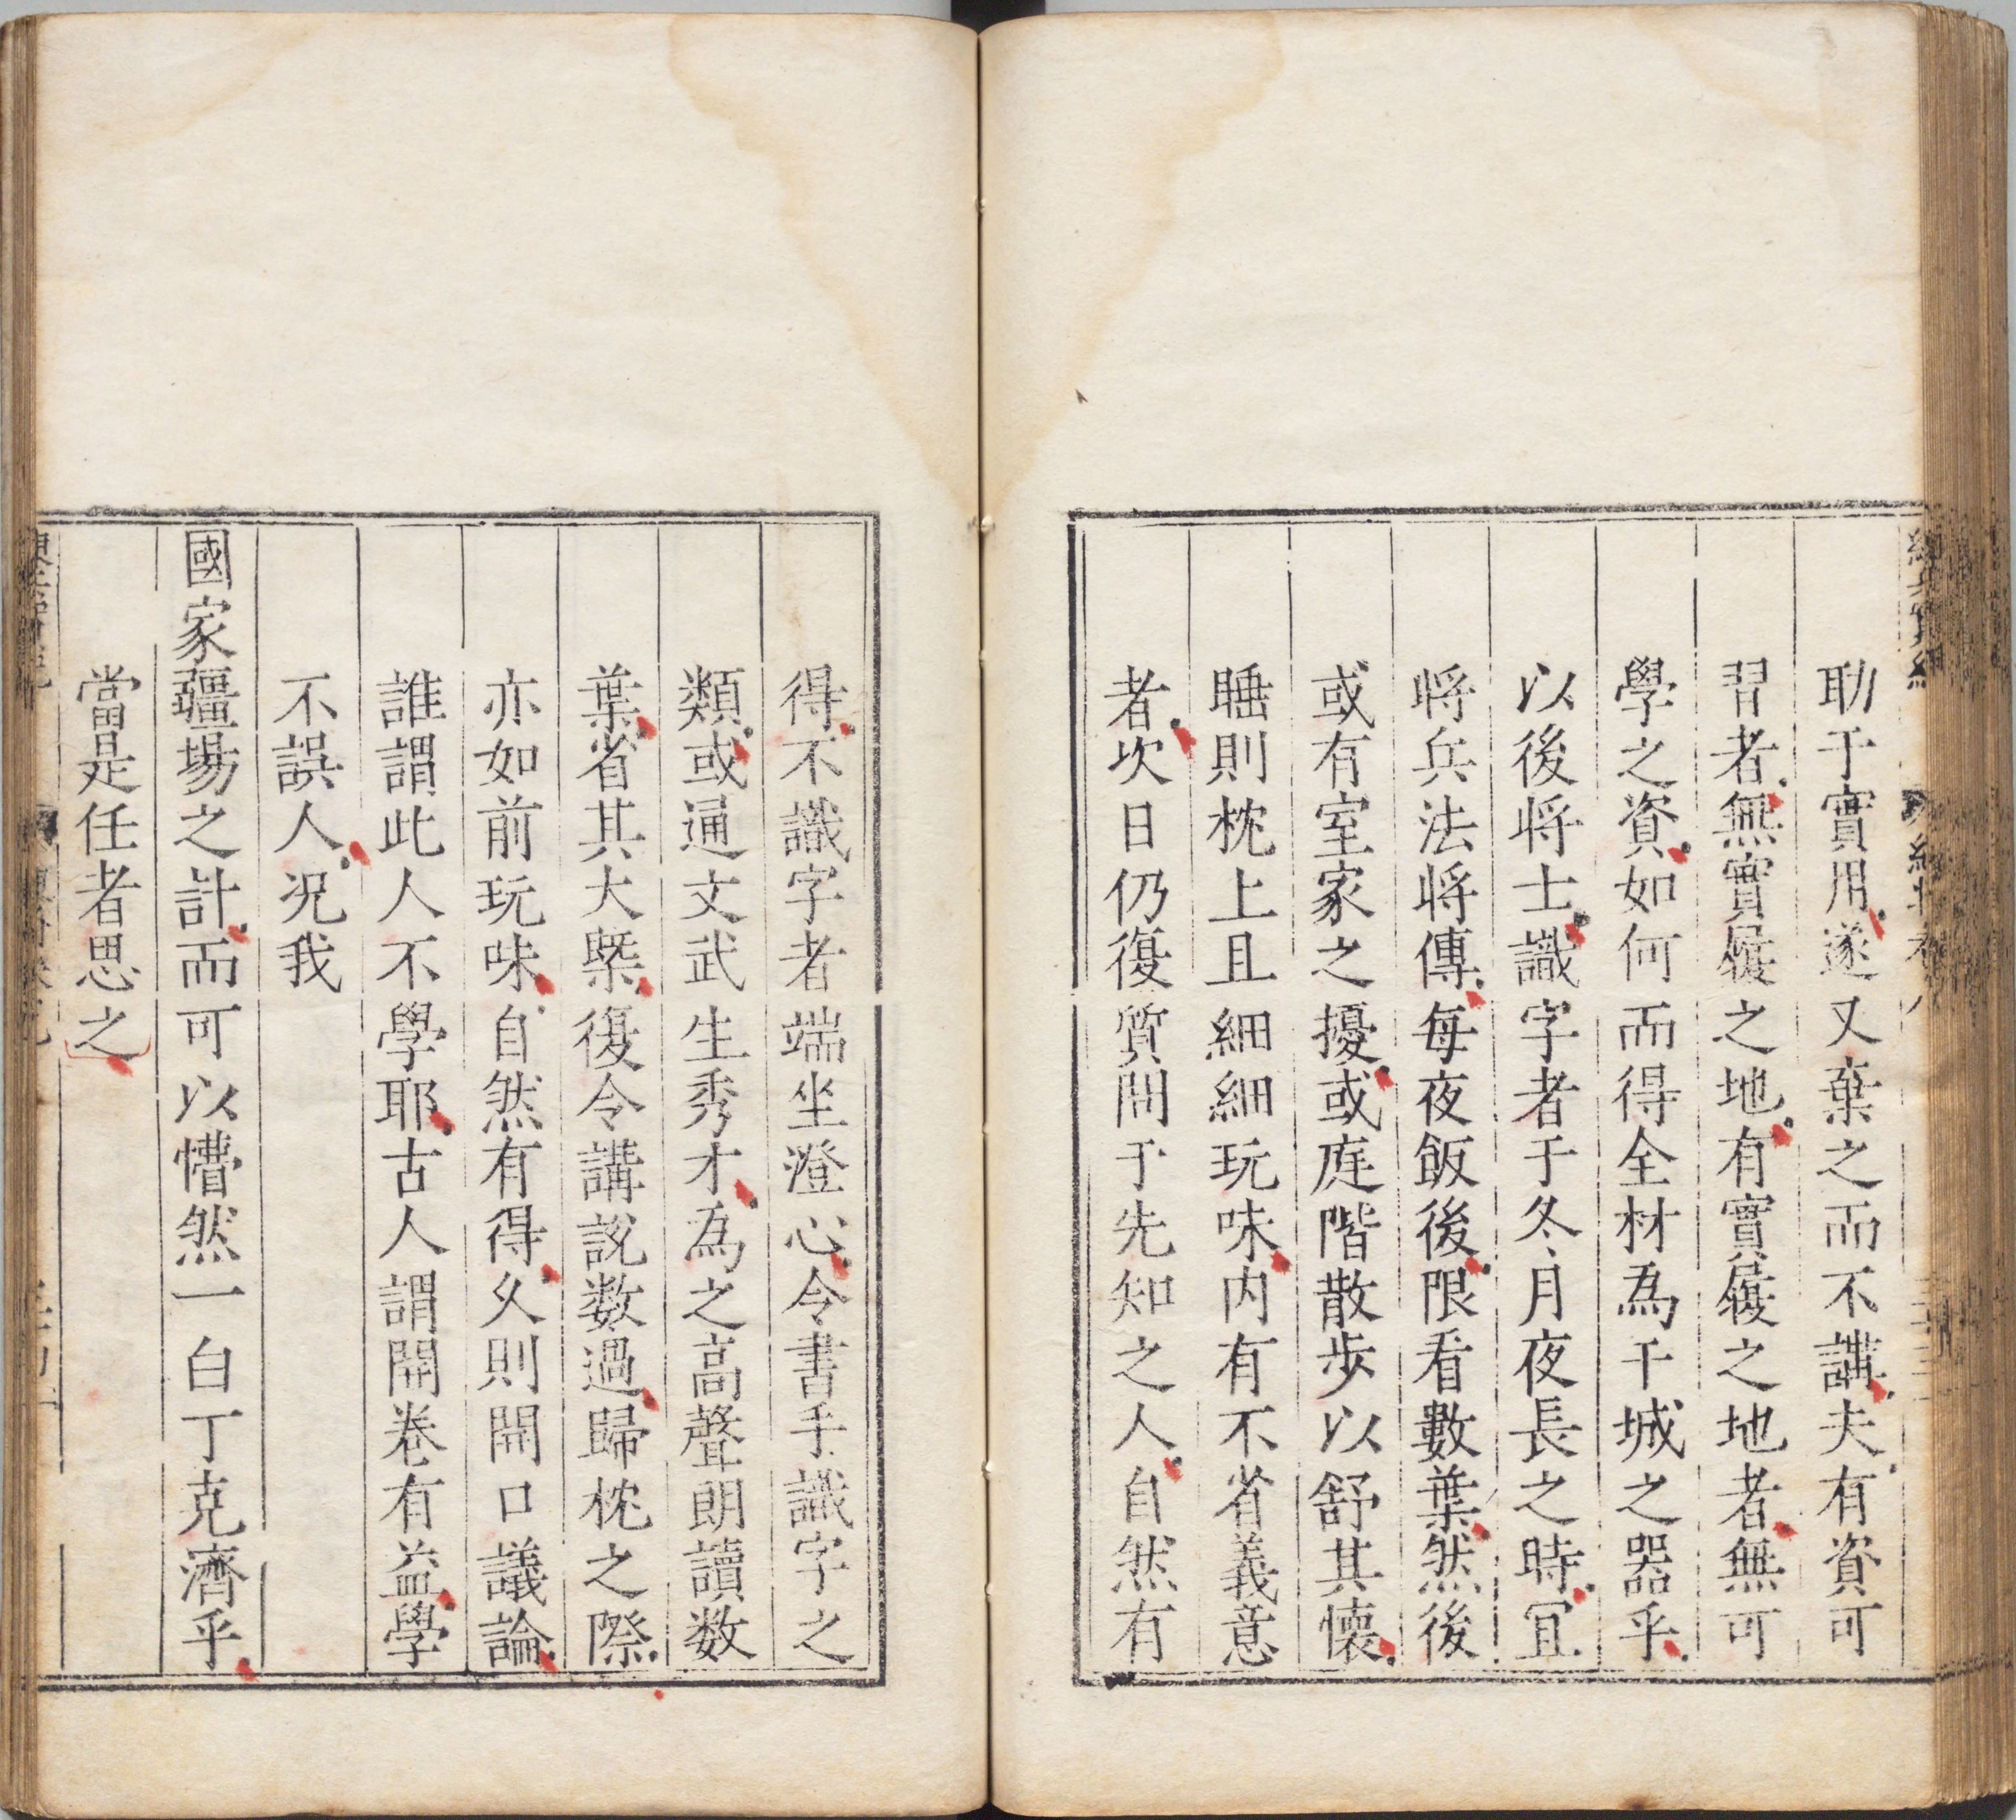 助于實用遂又棄之而不講夫有資可
習者無實履之地有實履之地者無可
學之資如何而得全材爲干城之器乎
以後将士識字者于冬月夜長之時宜
将兵法将傳每夜飯後限看數葉然後
或有室家之擾或庭階散步以舒其懷
睡則枕上且細細玩味内有不省義意
者次日仍復質問于先知之人自然有
得不識字者端坐澄心令書手識字之
類或通文武生秀才為之高聲朗讀数
葉省其大槩復令講説数過歸枕之際
亦如前玩味自然有得久則開口議論
誰謂此人不學耶古人謂開卷有益學
不誤人况我
國家疆場之計而可以懵然一白丁克濟乎
當是任者思之